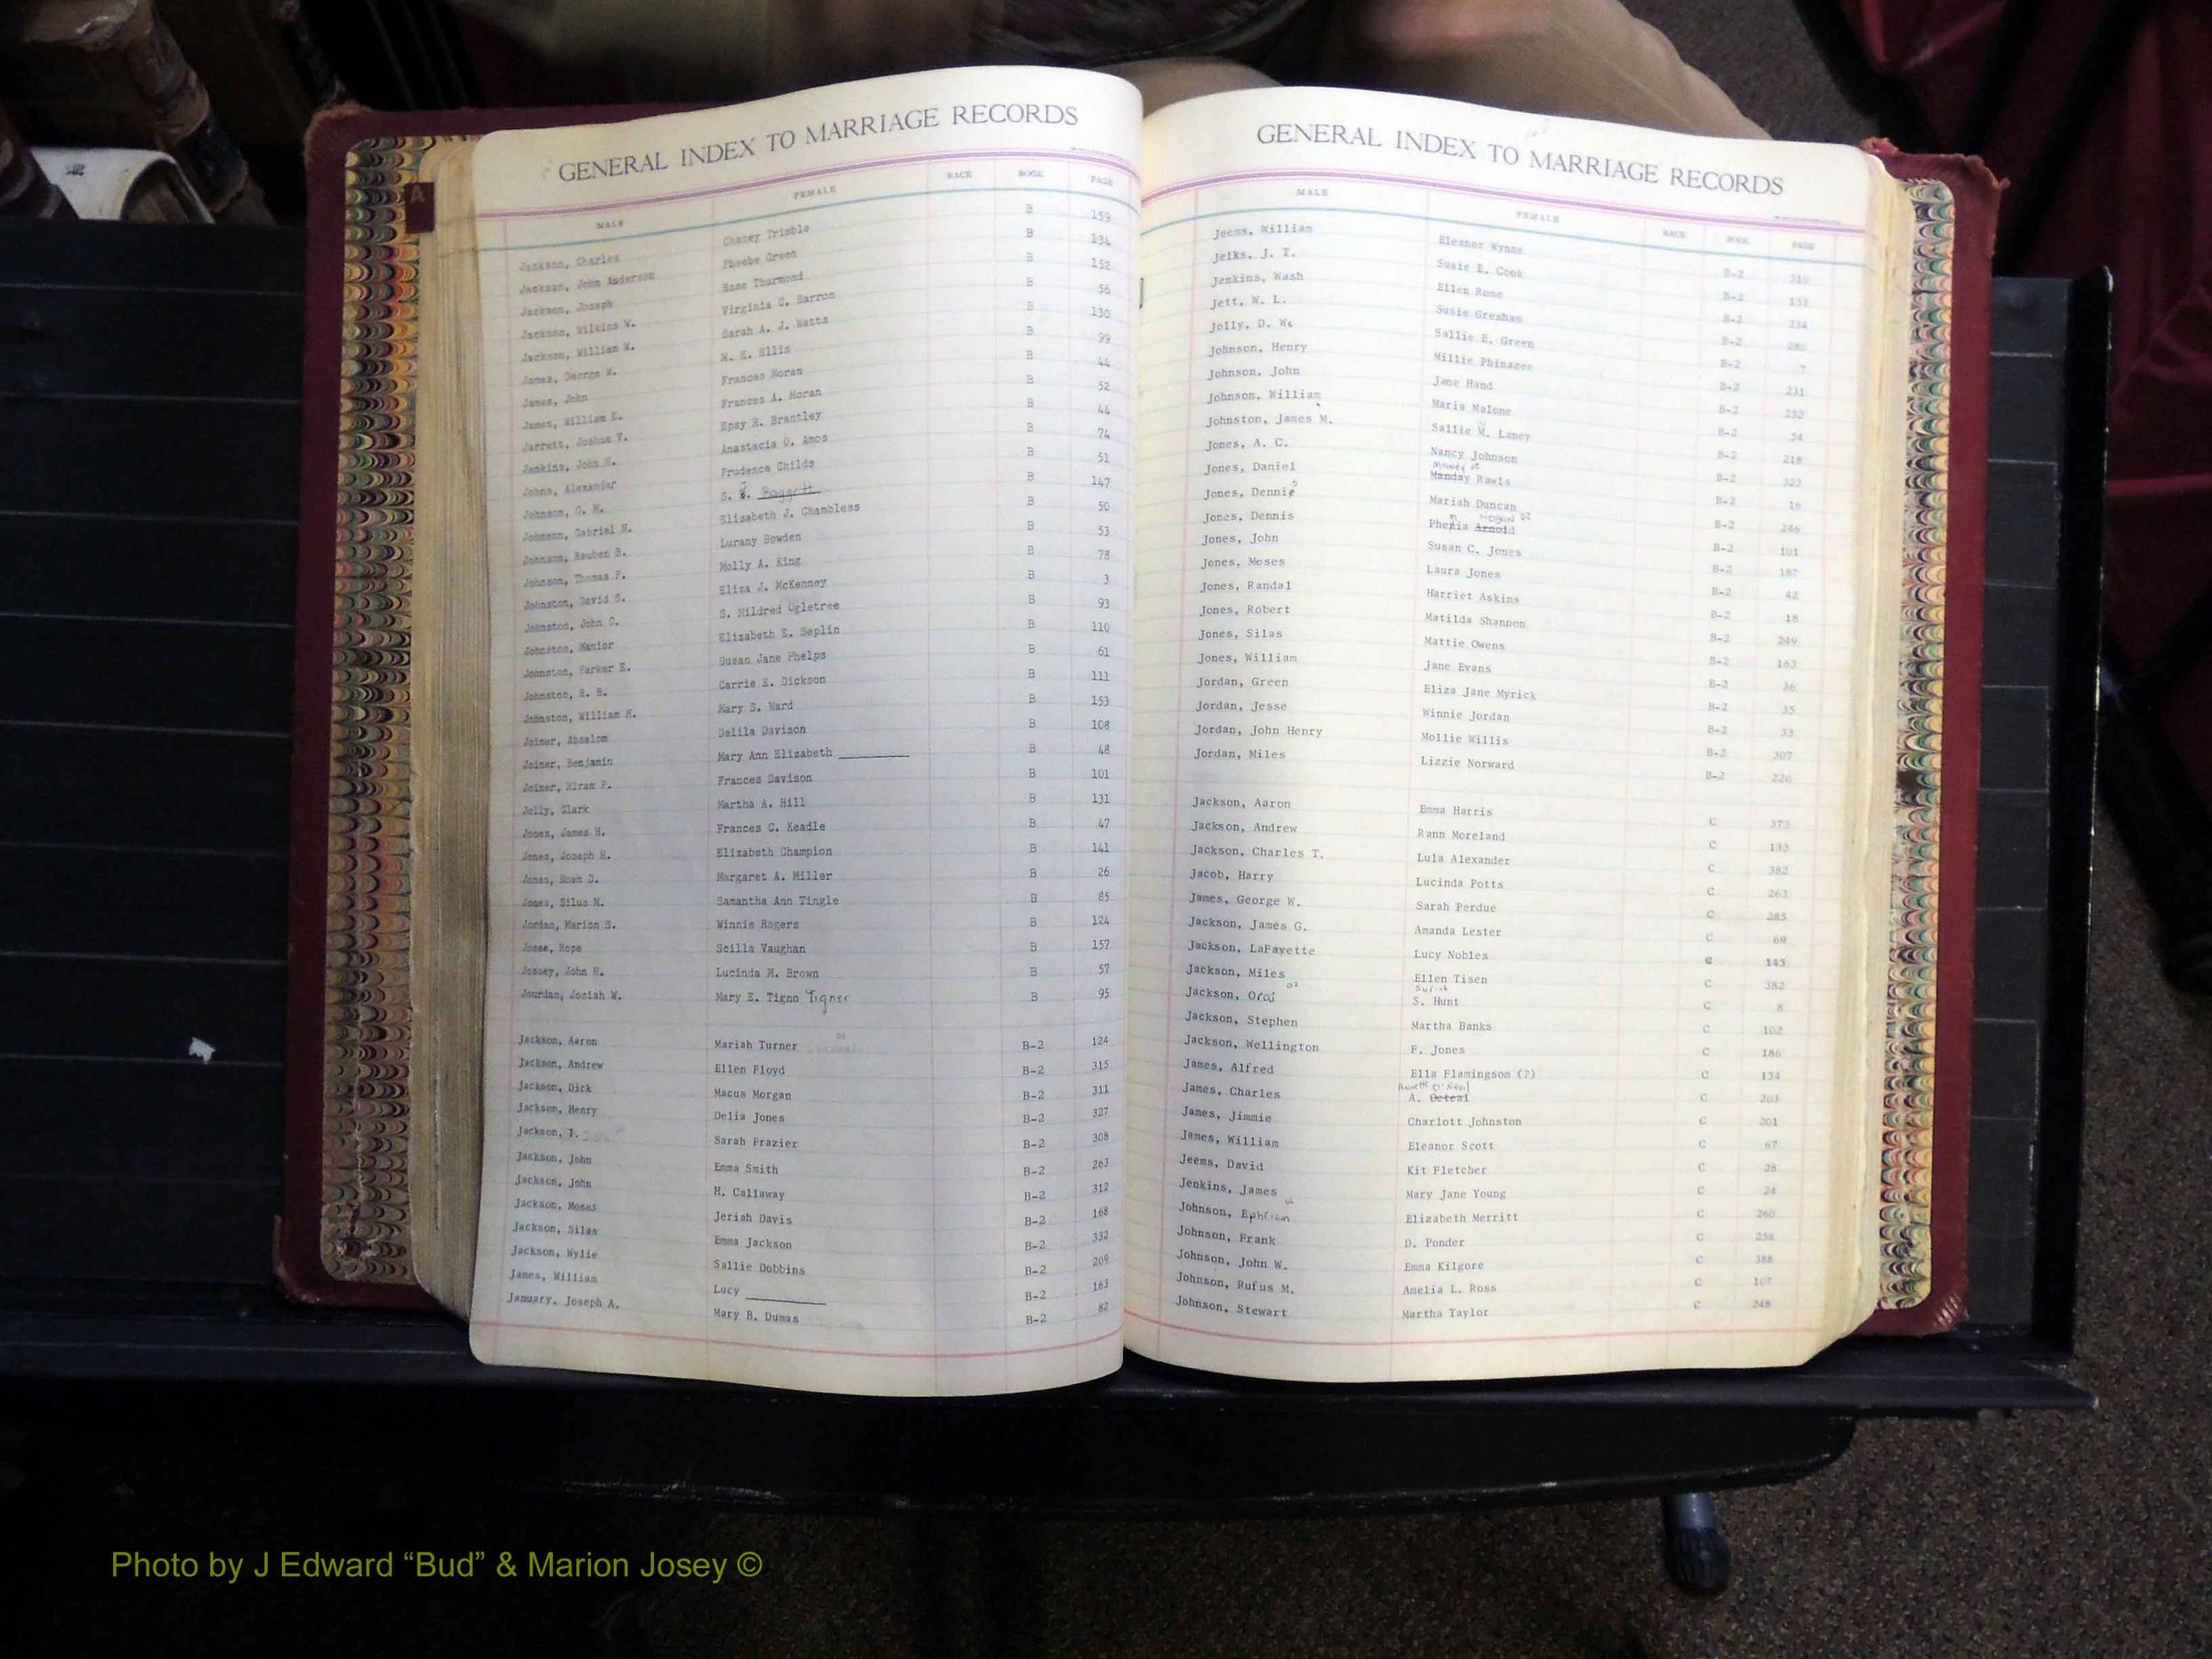 GENERAL INDEX TO MARRIAGE RECORDS
MALE FEMALE RACE BOOK PAGE
Jackson, Charles Chaney Trimble B 159
Jackson, John Anderson Phoebe Green B 134
Jackson, Joseph Rose Thurmond B 152
Jackson, Wilkins W. Virginia C. Barron B 56
Jackson, William W. Sarah A. J. Watts B 130
James, George W. M. E. Ellis B 99
James, John Frances Moran B 44
James, William E. Frances A. Moran B 52
Jarrett, Joshua V. Epsy R. Brantley B 44
Jenkins, John H. Anastacia O. Amos B 74
Johns, Alexander Prudence Childs B 51
Johnson, G. M. S. J. Baggett B 147
Johnson, Gabriel N. Elizabeth J. Chambless B 50
Johnson, Reuben B. Lurany Bowden B 53
Johnson, Thomas P. Molly A. King B 78
Johnston, David S. Eliza J. McKenney B 3
Johnston, John C. S. Mildred Ogletree B 93
Johnston, Manior Elizabeth E. Seplin B 110
Johnston, Parker E. Susan Jane Phelps B 61
Johnston, R. B. Carrie E. Dickson B 111
Johnston, William H. Mary S. Ward B 153
Joiner, Absalom Delila Davison B 108
Joiner, Benjamin Mary Ann Elizabeth ________ B 48
Joiner, Hiram P. Frances Davison B 101
Jolly, Clark Martha A. Hill B 131
Jones, James H. Frances C. Keadle B 47
Jones, Joseph H. Elizabeth Champion B 141
Jones, Noah D. Margaret A. Miller B 26
Jones, Silus M. Samantha Ann Tingle B 85
Jordan, Marion S. Winnie Rogers B 124
Josse, Hope Scilla Vaughan B 157
Jossey, John H. Lucinda M. Brown B 57
Jourdan, Josiah W. Mary E. Tigno Tigner B 95
Jackson, Aaron Mariah Turner or B-2 124
Jackson, Andrew Ellen Floyd B-2 315
Jackson, Dick Macus Morgan B-2 311
Jackson, Henry Delia Jones B-2 327
Jackson, I. Sarah Frazier B-2 308
Jackson, John Emma Smith B-2 263
Jackson, John H. Callaway B-2 312
Jackson, Moses Jeriah Davis B-2 168
Jackson, Silas Emma Jackson B-2 332
Jackson, Wylie Sallie Dobbins B-2 209
James, William Lucy ________ B-2 163
January, Joseph A. Mary B. Dumas B-2 82
GENERAL INDEX TO MARRIAGE RECORDS
MALE FEMALE RACE BOOK PAGE
Jeems, William Eleanor Wynne B-2 310
Jelks, J. T. Susie E. Cook B-2 133
Jenkins, Wash Ellen Rome B-2 234
Jett, W. L. Susie Gresham B-2 280
Jolly, D. W. Sallie E. Green B-2 7
Johnson, Henry Millie Phinazee B-2 231
Johnson, John Jane Hand B-2 252
Johnson, William Maria Malone B-2 34
Johnston, James M. Sallie M. Laney B-2 218
Jones, A. C. Nancy Johnson B-2 323
Jones, Daniel Manday Rawls B-2 16
Jones, Dennis Mariah Duncan B-2 246
Jones, Dennis Phenia Arnold B-2 101
Jones, John Susan C. Jones B-2 187
Jones, Moses Laura Jones B-2 42
Jones, Randal Harriet Askins B-2 18
Jones, Robert Matilda Shannon B-2 249
Jones, Silas Mattie Owens B-2 163
Jones, William Jane Evans B-2 36
Jordan, Green Eliza Jane Myrick B-2 35
Jordan, Jesse Winnie Jordan B-2 33
Jordan, John Henry Mollie Willis B-2 307
Jordan, Miles Lizzie Norward B-2 220
Jackson, Aaron Emma Harris C 373
Jackson, Andrew Rann Moreland C 133
Jackson, Charles T. Lula Alexander C 382
Jacob, Harry Lucinda Potts C 263
James, George W. Sarah Perdue C 285
Jackson, James G. Amanda Lester C 69
Jackson, LaFayette Lucy Nobles C 145
Jackson, Miles Ellen Tisen C 382
Jackson, Oras S. Hunt C 8
Jackson, Stephen Martha Banks C 102
Jackson, Wellington F. Jones C 186
James, Alfred Ella Flamingsom (?) C 154
James, Charles A. Oeteal C 203
James, Jimmie Charlott Johnston C 201
James, William Eleanor Scott C 67
Jeems, David Kit Fletcher C 28
Jenkins, James Mary Jane Young C 24
Johnson, Ephriam Elizabeth Merritt C 260
Johnson, Frank D. Ponder C 256
Johnson, John W. Emma Kilgore C 388
Johnson, Rufus M. Amelia L. Ross C 107
Johnson, Stewart Martha Taylor C 248
A
Photo by J Edward “Bud” & Marion Josey ©